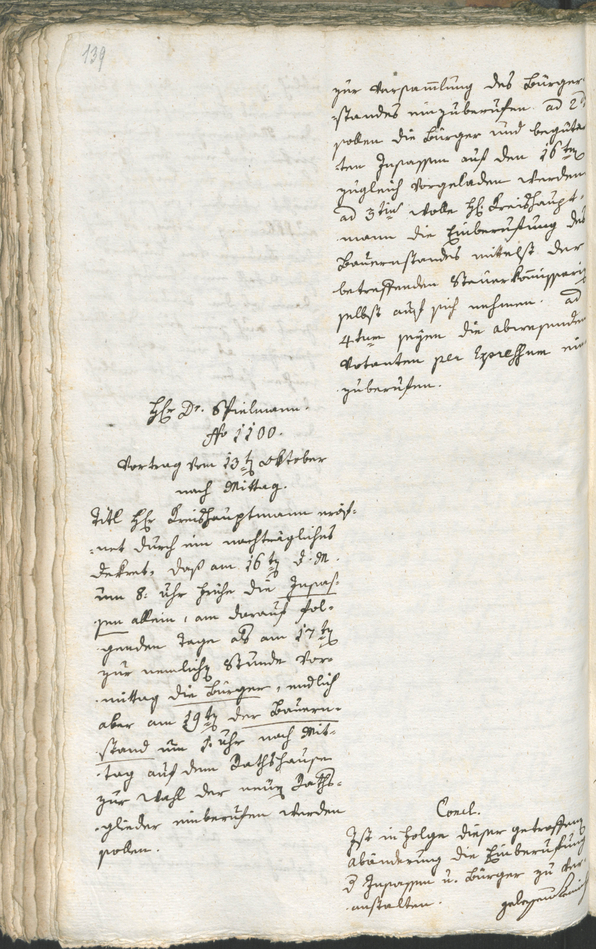 139
zur Versam̅lung des Bürger-
standes einzuberufen. ad 2
sollen die Bürger und begüte
ten Insassen auf den 16ten
zugleich vorgeladen werden
ad 3tium wolle H. Kreishaupt-
mann die Einberufung des
Bauernstandes mittelst der
betreffenden Steuerkom̅issarien
selbst auf sich nehmen. ad
4tum seyen die abwesenden
Votanten per Expressum ein
zuberufen.
Hr Dr. Spielmann.
No 1100.
Vortrag vom 13ten Oktober
nach Mittag.
Titl Hr Kreishauptmann eröf-
net durch ein nachträgliches
Dekret, daß am 16ten d. M.
um 8. Uhr Frühe die Insas-
sen allein, am darauf fol-
genden Tage als am 17ten
zur nemlichen Stunde Vor-
mittag die Bürger, endlich
aber am 19ten der Bauern-
stand um Uhr nach Mit-
tag auf dem Rathhause
zur Wahl der neuen Raths-
glieder einberufen werden
sollen.
Concl.
Ist in Folge dieser getroffenen
Abänderung die Einberufung
d Insassen u. Bürger zu ver-
anstalten.